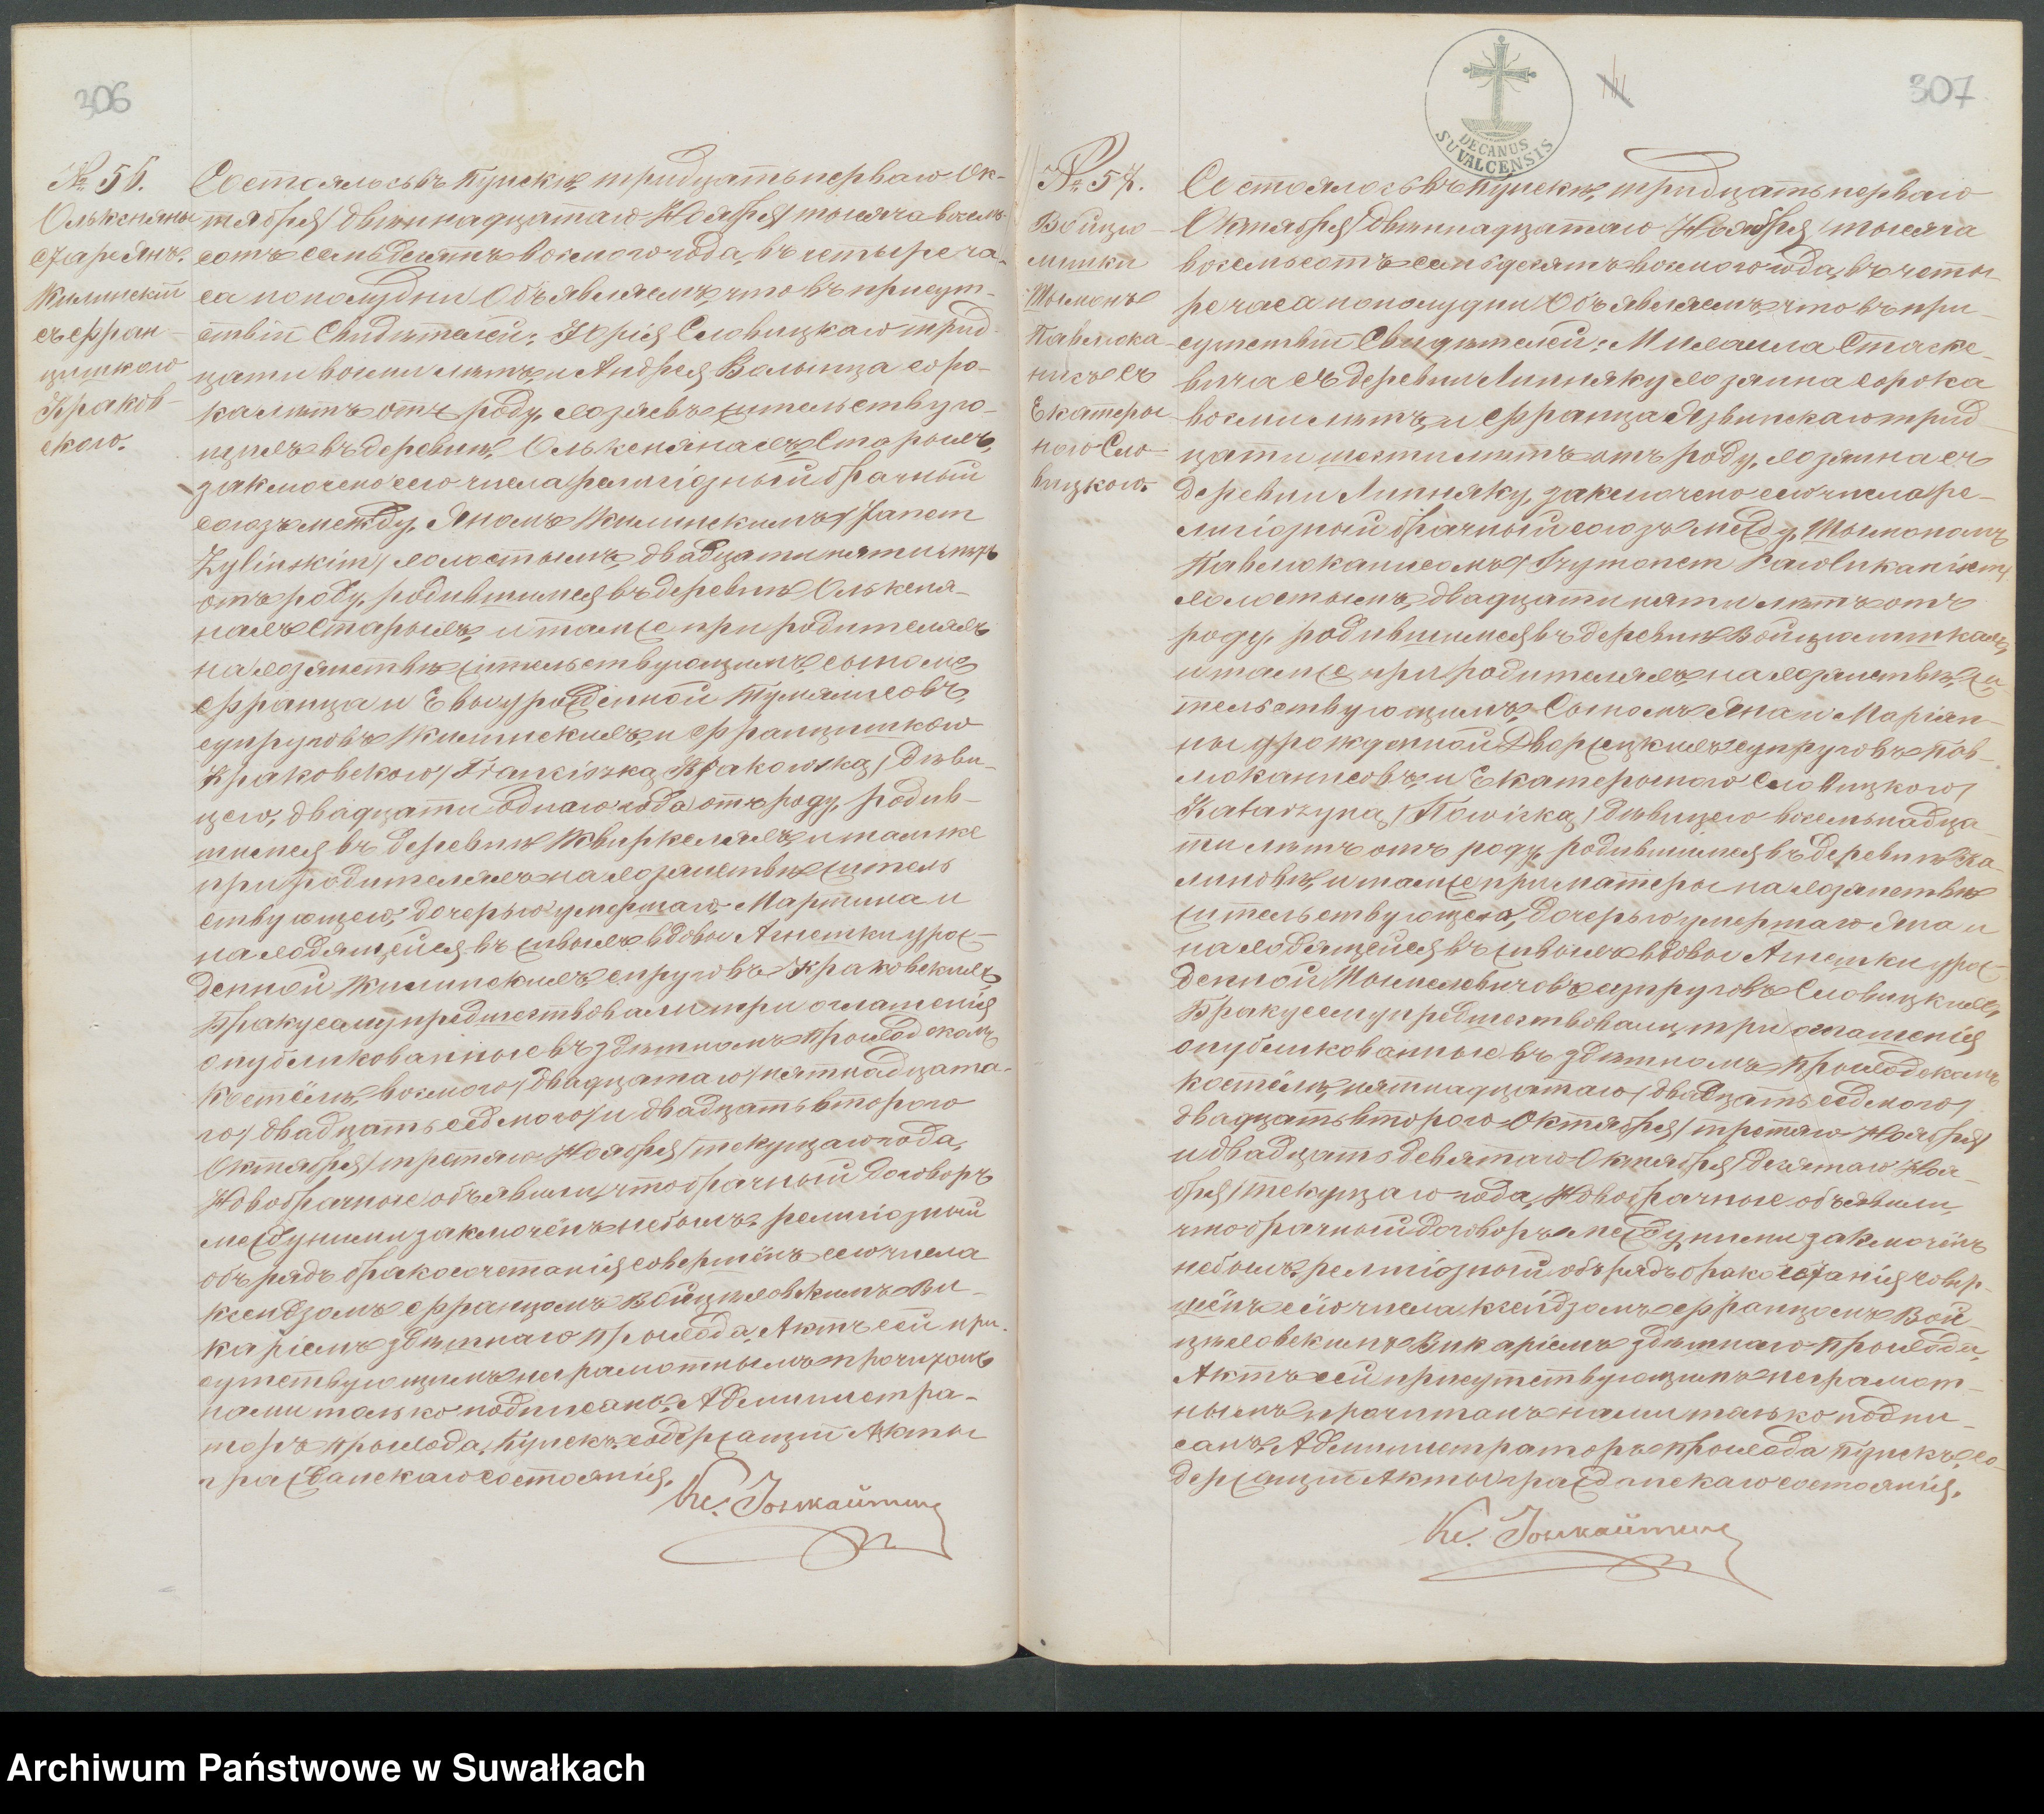 306
№ 56.
Олькеняны
Старе Янъ
Жилинскій
съ Фран-
цишкою
Краков-
скою.
Состоялось въ Пунскѣ тридцать перваго Ок-
тября /двѣннадцатаго Ноября/ тысяча восемь-
сотъ семьдесятъ восмого года, въ четыре ча-
са пополудни. Объявляемъ, что въ присут-
ствіи Свидѣтелей: Юрія Словицкаго трид-
цати восми лѣтъ, и Андрея Валынца соро-
ка лѣтъ отъ роду, хозяевъ жительствую-
щихъ въ деревнѣ Олькенянахъ Старыхъ,
заключено сего числа религіозный брачный
союзъ между, Яномъ Жилинскимъ /Janem
Żylinskim/ холостымъ, двадцати пяти лѣтъ
отъ роду, родившимся въ деревнѣ Олькеня-
нахъ Старыхъ, и тамже при родителяхъ
на хозяйствѣ жительствующимъ, сыномъ
Франца и Евы урожденной Тумялисовъ,
супруговъ Жилинскихъ, и Францишкою
Краковскою /Franciszką Krakowską/ дѣви-
цею, двадцати одного года отъ роду, родив-
шимся въ деревнѣ Жвиркеляхъ, и тамже
при родителяхъ на хозяйствѣ житель-
ствующею, дочерью умершаго Мартина и
находящейся въ живыхъ вдовы Агнешки урож-
денной Жилинскихъ супруговъ Краковскихъ,
Браку сему предшествовали три оглашенія
опубликованные въ здѣшномъ Приходскомъ
Костёлѣ, восмого /двадцатаго/ пятнадцата-
го /двадцать седмого/ и двадцать второго
Октября /третяго Ноября/ текущаго года,
Новобрачные объявили, что брачный договоръ
между ними заключёнъ небылъ. религіозный
обърядъ бракосочетанія совершёнъ сего числа
ксендзомъ Францомъ Войцѣховскимъ Ви-
каріемъ здѣшнаго Прихода, Актъ сей при-
сутствующимъ неграмотнымъ прочитанъ
нами только подписанъ. Администра-
торъ прихода Пунскъ, содержащій Акты
гражданскаго состоянія.
Кс. Іошкайтисъ
307
DECANUS
SUVALCENSIS
№ 57.
Войцю-
лишки
Шымонъ
Павлюка-
нисъ съ
Екатеры-
ною Сло-
вицкою.
Состоялось въ Пунскѣ, тридцать перваго
Октября /двѣннадцатаго Ноября/ тысяча
восемьсотъ семьдесятъ восмого года, въ четы-
ре часа пополудни. Объявляемъ, что въ при-
сутствіи Свидѣтелей: Михаила Стаске-
вича съ деревни Липняку хозяина сорока
восми лѣтъ, и Франца Язвинскаго трид-
цати шести лѣтъ отъ роду, хозяина съ
деревни Липняку, заключено сего числа ре-
лигіозный брачный союзъ между, Шымономъ
Павлюканисомъ /Szymonem Pawlukanisem/
холостымъ, двадцати пяти лѣтъ отъ
роду, родившимся въ деревнѣ Войцюлишкахъ,
и тамже при родителяхъ, на хозяйствѣ жи-
тельствующимъ, Сыномъ Яна и Маріан-
ны урожденной Дворжецкихъ супруговъ Пав-
люканисовъ, и Екатерыною Словицкою /
Katarzyną Słowicką/ дѣвицею восемьнадца-
ти лѣтъ отъ роду, родившимся въ деревнѣ Ка-
линовѣ, и тамже при матеры на хозяйствѣ
жительствующею, дочерью умершаго Яна и
находящейся въ живыхъ вдовы Агнешки урож-
денной Шымелевичовъ супруговъ Словицкихъ,
Браку сему предшествовали, три оглашенія
опубликованные въ здѣшномъ Приходскомъ
костёлѣ, пятнадцатаго /двадцать седмого/
двадцать второго Октября /третяго Ноября/
и двадцать девятаго Октября /десятаго Ноя-
бря/ текущаго года, Новобрачные объявили,
что брачный договоръ между ними заключёнъ
небылъ. религіозный обърядъ бракосочетанія совер-
шёнъ сего числа, ксендзомъ Францомъ Вой-
цѣховскимъ Викаріемъ здѣшнаго Прихода,
Актъ сей присутствующимъ неграмот-
нымъ прочитанъ нами только подпи-
санъ. Администраторъ прихода Пунскъ со-
держащій Акты гражданскаго состоянія.
Кс. Іошкайтисъ
Archiwum Państwowe w Suwałkach